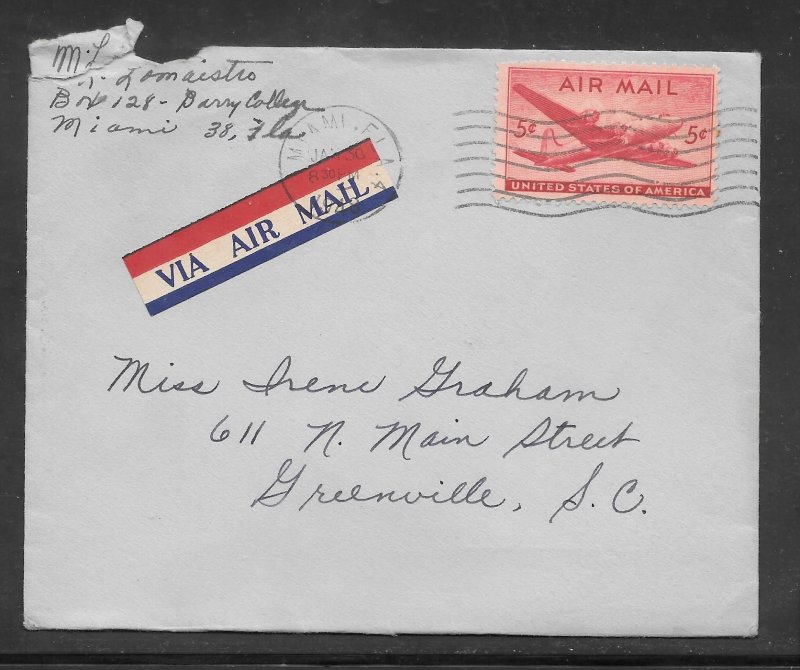 M. L
Lomaistro
Box 128 - Barry College
Miami 38, Fla
MIAMI, FLA.
JAN 30
8 30 PM
AIR MAIL
5¢ 5¢
UNITED STATES OF AMERICA
VIA AIR MAIL
Miss Irene Graham
611 N. Main Street
Greenville, S.C.